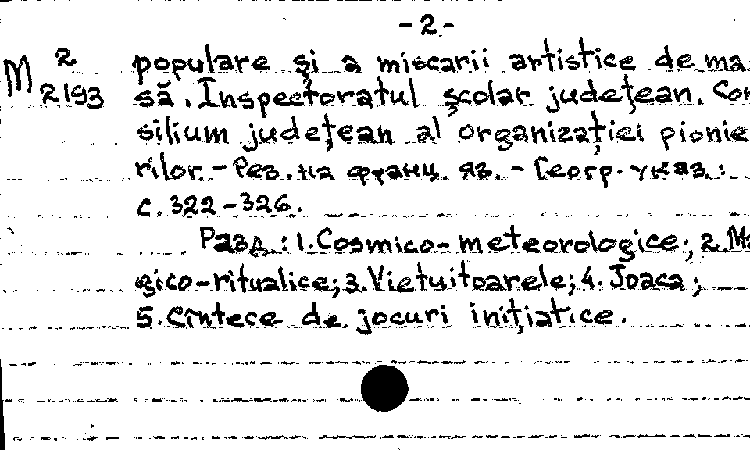 -2-
M 2/2193
populare și a miscarii artistice de ma
să. Inspectoratul școlar județean. Con
silium județean al organizației pionie
rilor.- Рез. на франц. яз.- Геогр. указ.:
с. 322-326.
Разд.: 1. Cosmico-meteorologice; 2. Ma
gico-ritualice; 3. Vietuitoarele; 4. Joaca;
5. Cîntece de jocuri inițiatice.